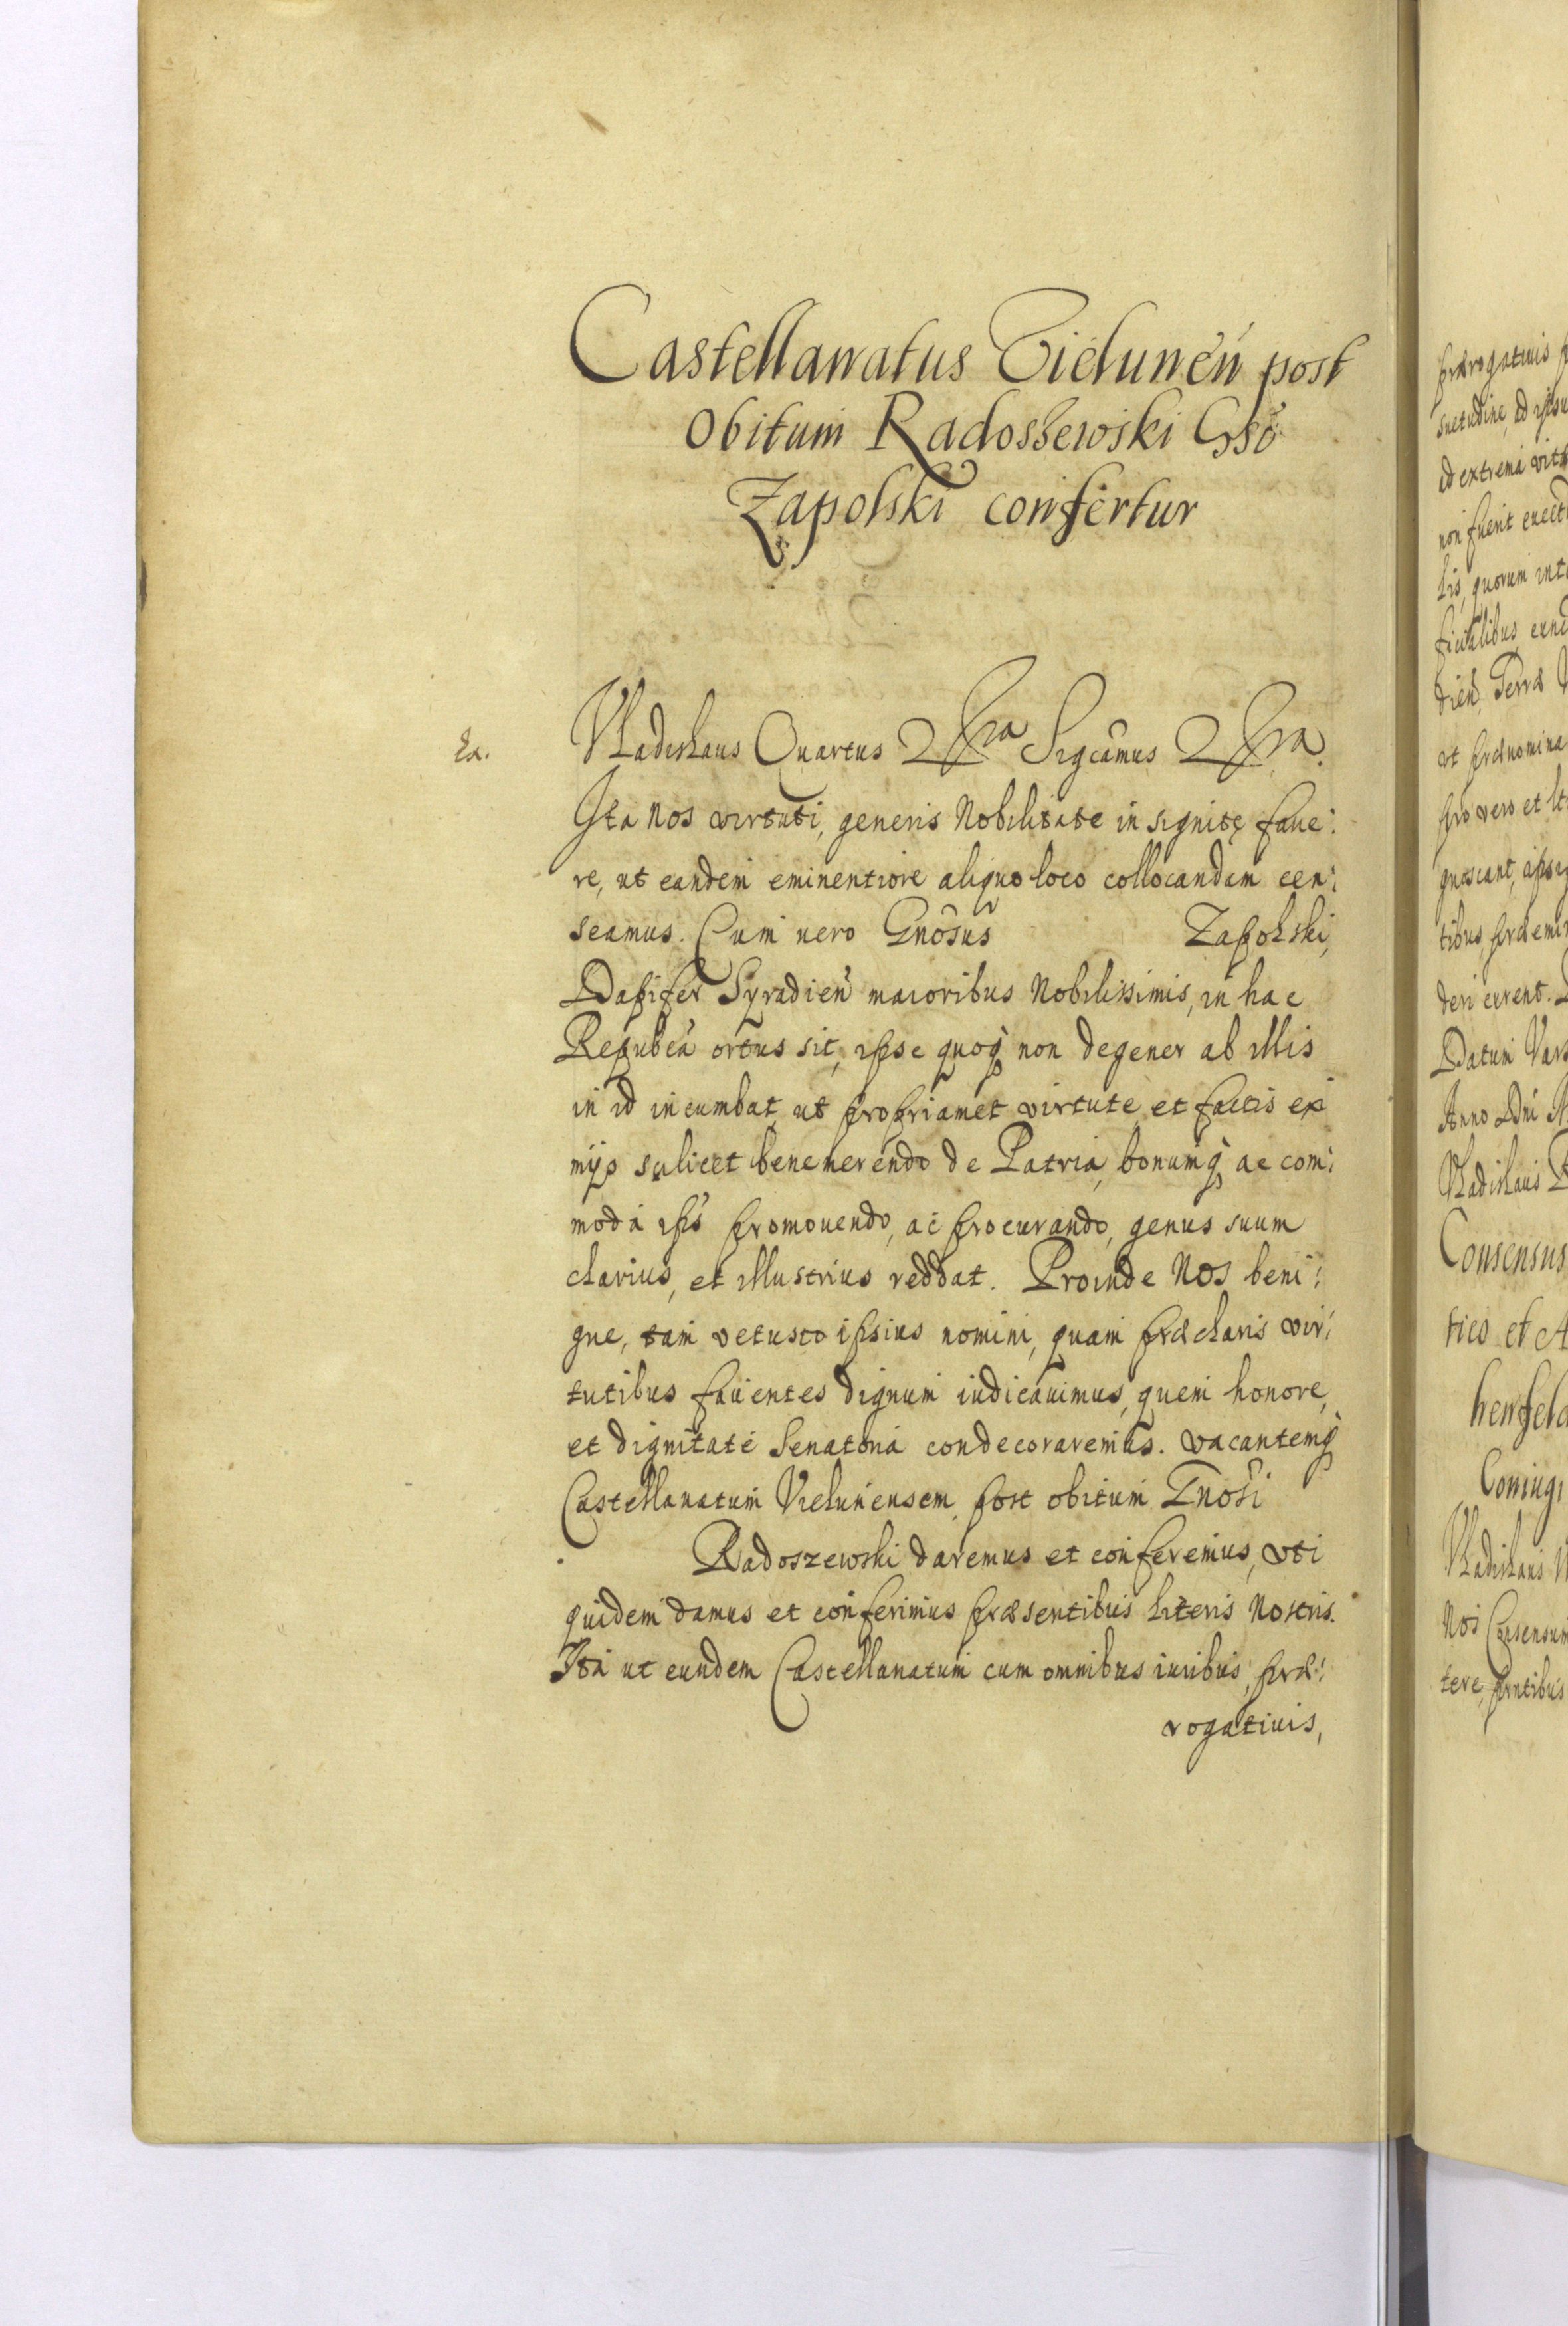 Castellanatus Vielunen̄ post
obitum Radoszewski Gn̄so
Zapolski confertur
La.
Vladislaus Quartus &c̄ra Sigcamus &c̄ra.
Ita nos virtuti, generis Nobilitate insignitę faue:
re, ut eandem eminentiore aliquo loco collocandam cen:
seamus. Cum uero Gnōsus Zapolski,
Dapifer Syradien̄ maioribus Nobilissimis, in hac
Repubca ortus sit, ipse quoq non degener ab illis
in id incumbat, ut propriamet virtute et factis exi
mijs scilicet benemerendo de Patria, bonumq ac com:
moda ips̄ promouendo, ac procurando, genus suum
clarius, et illustrius reddat. Proinde Nos beni:
gne, tam vetusto ipsius nomini, quam præclaris vir:
tutibus fauentes dignum iudicauimus, quem honore,
et dignitate Senatoria condecoraremus. vacantemq
Castellanatum Vielunensem, post obitum Gnōsi
Radoszewski daremus et conferemus, vti
quidem damus et conferimus præsentibus literis Nostris.
Ita ut eundem Castellanatum cum omnibus iuribus, præ:
rogatiuis,
prærogatiuis
suetudine,
et extrema
non fuerit
lis, quorum
ficialibus,
dien̄. Terræ
ut prænomina
pro vero et
quoscant,
tibus,
deri curent.
Datum Vars
Anno Dn̄i
Vladislaus
Consensus
tico et A
henfeld
Coniugi
Vladislaus
Nos Consensum
tere, prntibus